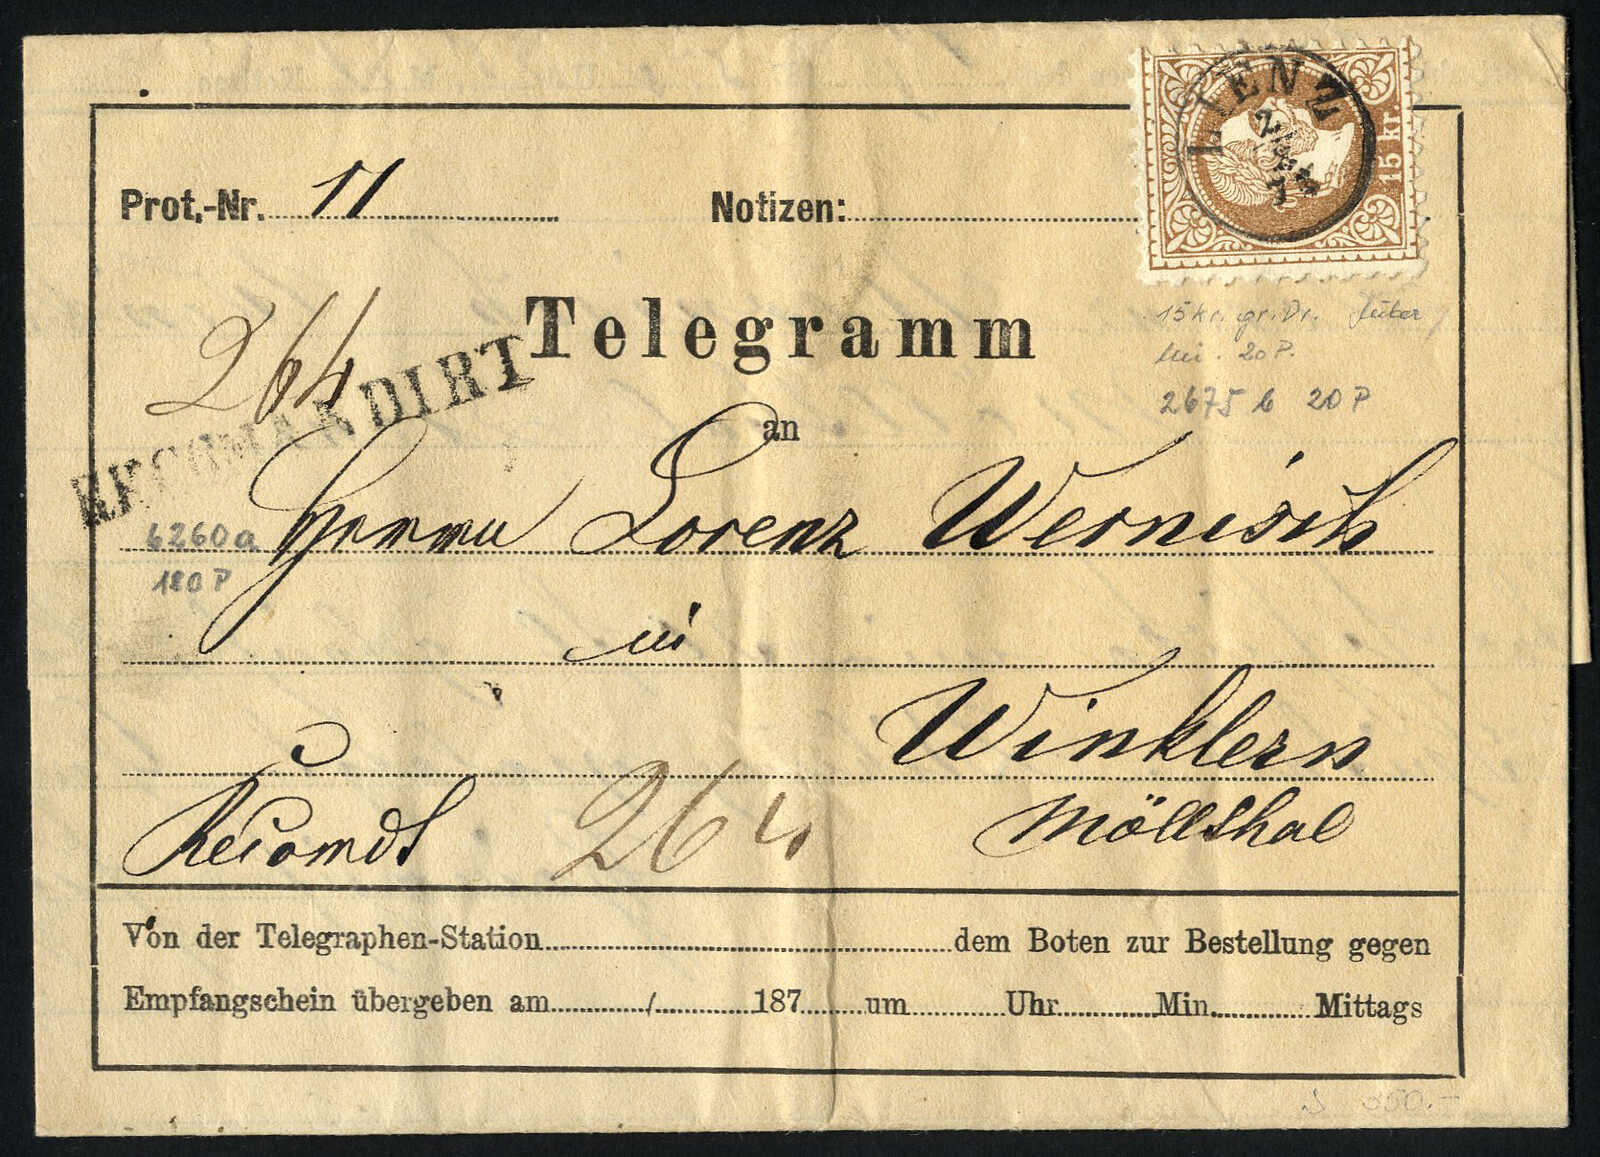 LIENZ
15 kr.
Prot.-Nr. 11
Notizen:
Telegramm
15 kr. gr. Dr.
20 P.
2675 b 20 P
264
RECOMANDIRT
an
6260a
180 P
Herrn Lorenz Wernisch
in
Winklern
Recomdt 264 Möllthal
Von der Telegraphen-Station dem Boten zur Bestellung gegen
Empfangschein übergeben am / 187 um Uhr Min. Mittags
350.-